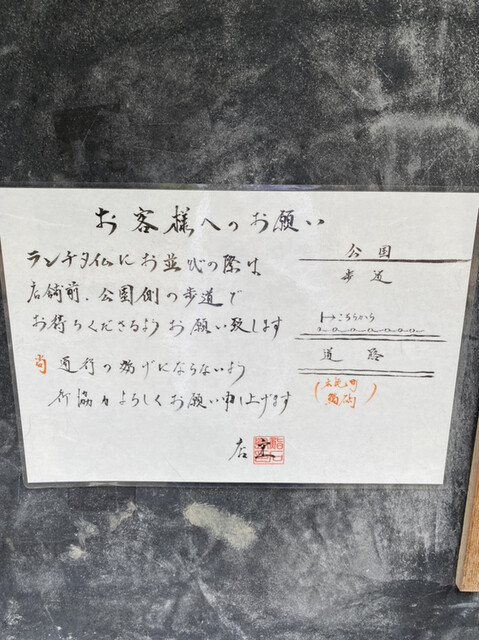 お客様へのお願い
ランチタイムにお並びの際は
店舗前、公園側の歩道で
お待ちくださるようお願い致します
尚 通行の妨げにならないよう
御協力よろしくお願い申し上げます
店主
公園
歩道
こちらから
道路